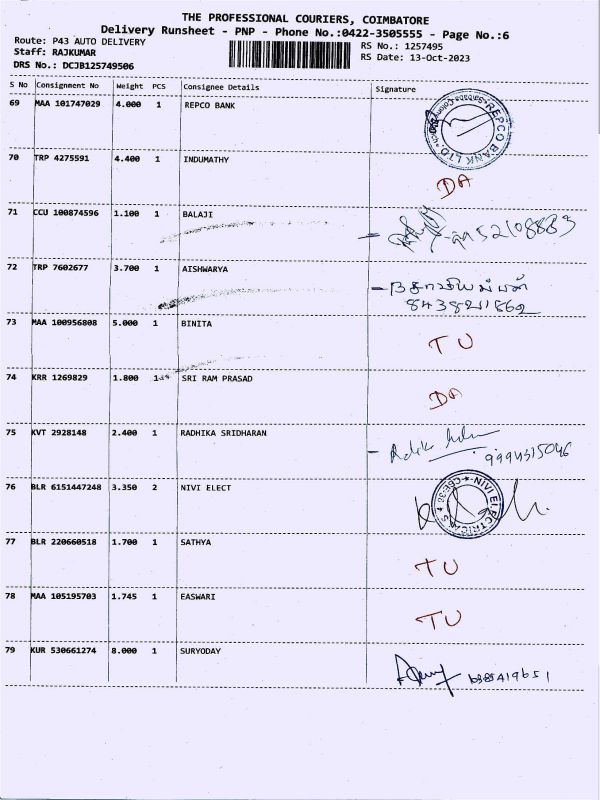 THE PROFESSIONAL COURIERS, COIMBATORE
Delivery Runsheet - PNP - Phone No.:0422-3505555 - Page No.:6
Route: P43 AUTO DELIVERY
RS No.: 1257495
Staff: RAJKUMAR
RS Date: 13-Oct-2023
DRS No.: DCJB125749506
S No Consignment No Weight PCS Consignee Details Signature
69 MAA 101747029 4.000 1 REPCO BANK
REPCO BANK LTD.
70 TRP 4275591 4.400 1 INDUMATHY
DA
71 CCU 100874596 1.100 1 BALAJI
72 TRP 7602677 3.700 1 AISHWARYA
8438211862
73 MAA 100956808 5.000 1 BINITA
TU
74 KRR 1269829 1.800 1 SRI RAM PRASAD
DA
75 KVT 2928148 2.400 1 RADHIKA SRIDHARAN
76 BLR 6151447248 3.350 2 NIVI ELECT
NIVI ELECTRICALS
77 BLR 220660518 1.700 1 SATHYA
TU
78 MAA 105195703 1.745 1 EASWARI
TU
79 KUR 530661274 8.000 1 SURYODAY